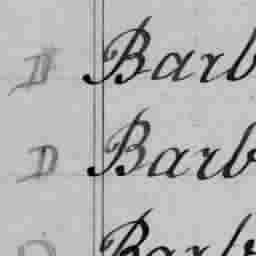 D Barb
D Barb
D Barb